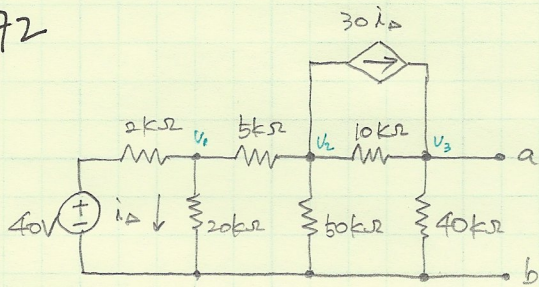 72
30 i_Δ
2kΩ
V₁
5kΩ
V₂
10kΩ
V₃
a
40V
+
−
i_Δ
20kΩ
50kΩ
40kΩ
b